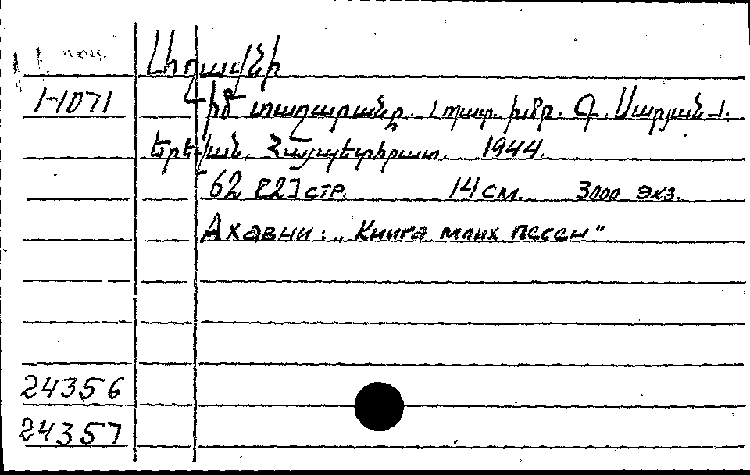 Աղավնի
1-1071 Իմ տաղարանը. Պատ. խմբ. Գ. Սարյան
Երևան, Հայպետհրատ. 1944.
62 [2] стр. 14 см. 3000 экз.
Ахавни: „Книга моих песен"
24356
24357